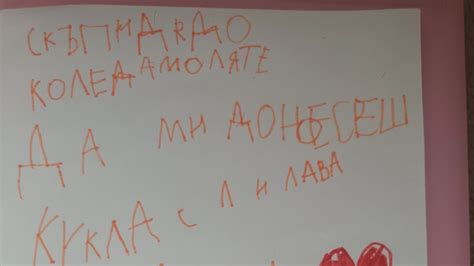 СКЪПИ ДЯДО
КОЛЕДА МОЛЯ ТЕ
ДА МИ ДОНЕСЕШ
КУКЛА С Л И ЛАВА